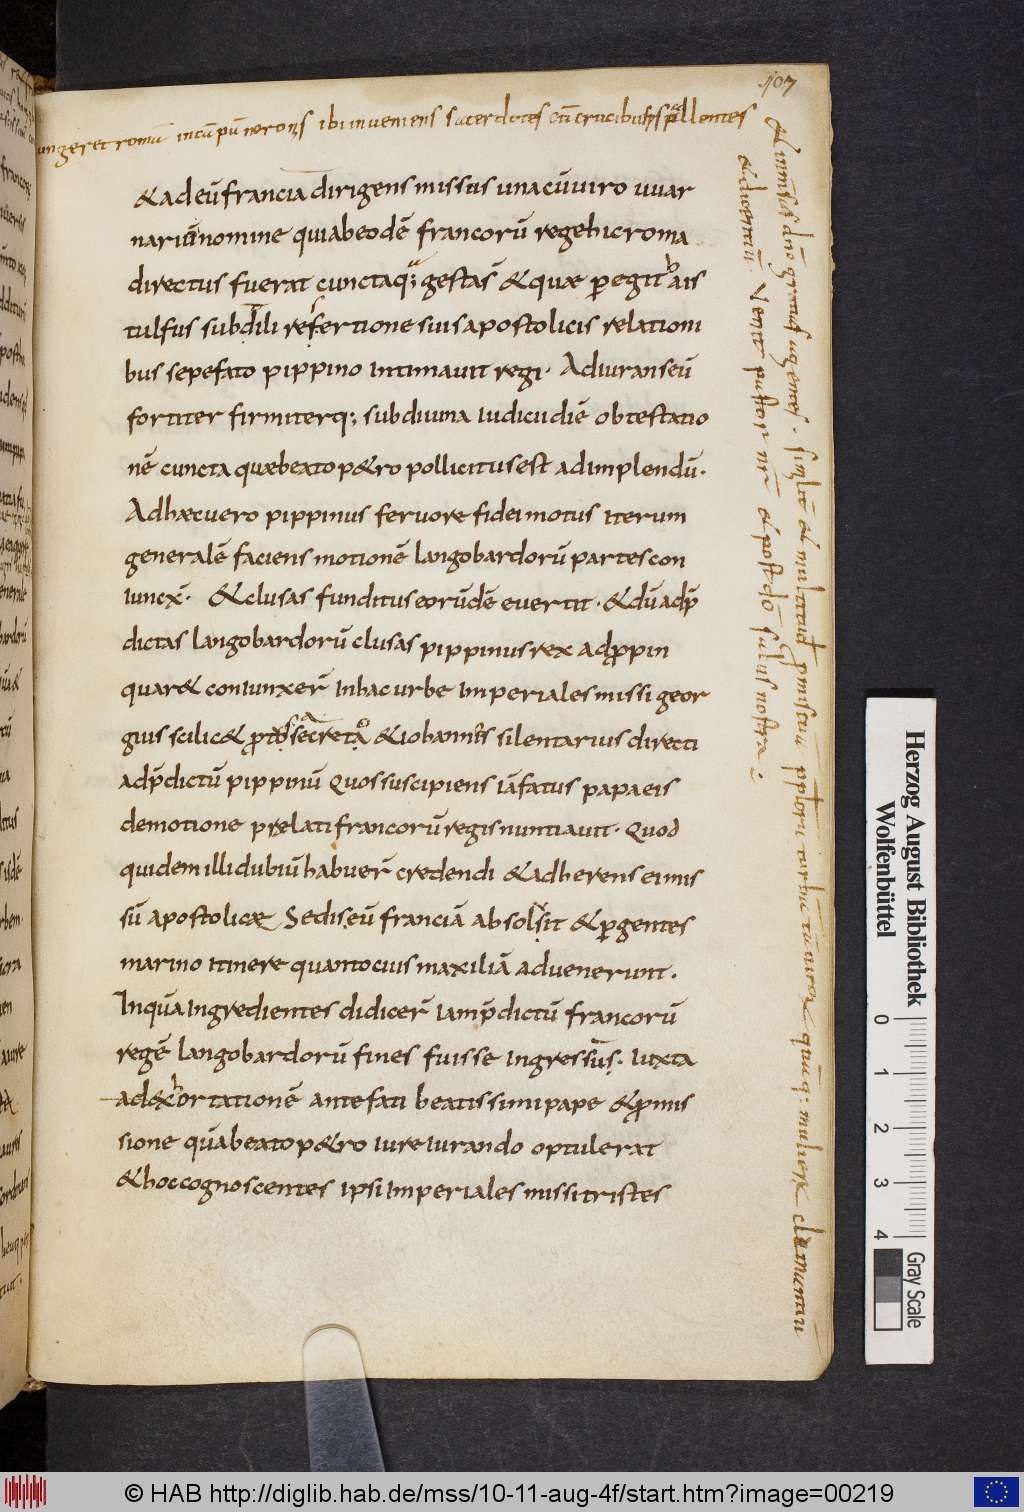 107
ungeret romā in cāpū neronis ibi inveniens sacerdotes cū crucibus psallentes
& ad eū francia dirigens missus una cū viro vvar
nariū nomine qui a beodē francorū rege hic roma
directus fuerat cunctaq; gesta & quæ peregit hais
tulfus subdili refertione suis apostolicis relationi
bus sepefato pippino intimavit regi. Adiurans eū
fortiter firmiterq; sub divina iudicii diē obtestatio
nē cuncta quæ beato p&ro pollicitus est adimplendū.
Ad hæc vero pippinus fervore fidei motus iterum
generalē faciens motionē langobardorū partes con
iunx̄. & clusas funditus eorūdē evertit. & dū adp̄
dictas langobardorū clusas pippinus rex adppin
quar& coniunxer̄ In hac urbe Imperiales missi geor
gius scilic& proto secreta & iohannis silentarius directi
adp̄dictū pippinū quos suscipiens iāfatus papa eis
de motione prelati francorū regis nuntiavit. Quod
quidem illi dubiū habuer̄ credendi & adherens ei mis
sū apostolicæ Sedis eū franciā absolsit & pergentes
marino itinere quantocius maxiliā advenerunt.
In quā Ingredientes didicer̄ Iamp̄dictū francorū
regē langobardorū fines fuisse Ingressus. Iuxta
ad&hortationē antefati beatissimi pape & promis
sione quā beato p&ro iure iurando optulerat
& hoc cognoscentes ipsi Imperiales missi tristes
& inmensas dn̄o gratias agentes. simlit̄ & multitud pmiscuū pptorū turbā tā virox quāq: mulierx clamantiū
& dicentiū. Venit pastor nr̄ & post dō salus nostra.
Herzog August Bibliothek
Wolfenbüttel
0 1 2 3 4
Gray Scale
© HAB http://diglib.hab.de/mss/10-11-aug-4f/start.htm?image=00219